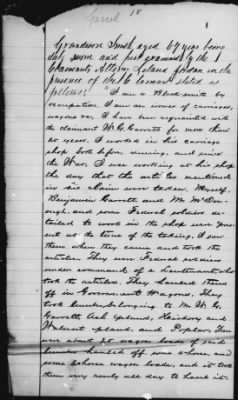 18
Grandison Smith, aged 67 years being
duly sworn and first examined by the
Claimants Attorney Leland Jordan in the
presence of the Claimant stated as
follows: "I am a Blacksmith by
occupation I am an ironer of carriages,
wagons &c, I have been acquainted with
the claimant W. G. Garrett for more than
years. I worked in his carriage
shop both before, during, and since
the War. I was working at his shop
the day that the articles mentioned
in his claim were taken. Myself,
Benjamin Garrett and Mr McDon-
ough, and some Federal soldiers de-
tailed to work in the shop were pres-
ent at the time of the taking. I saw
them when they came and took the
articles. They were Federal soldiers
under command of a Lieutenant, who
took the articles. They hauled them
off in Government Wagons. They
took lumber belonging to Mr W. G.
Garrett, Ash upland, Hickory and
Walnut upland, and Poplar. There
were about 25 wagon loads of said
lumber hauled off, some 4 horse, and
some 2 horse wagon loads, and it took
them very nearly all day to haul it.